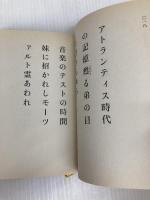 アトランティス時代
の記憶甦る弟の目
音楽のテストの時間
妹に招かれしモーツ
ァルト霊あわれ